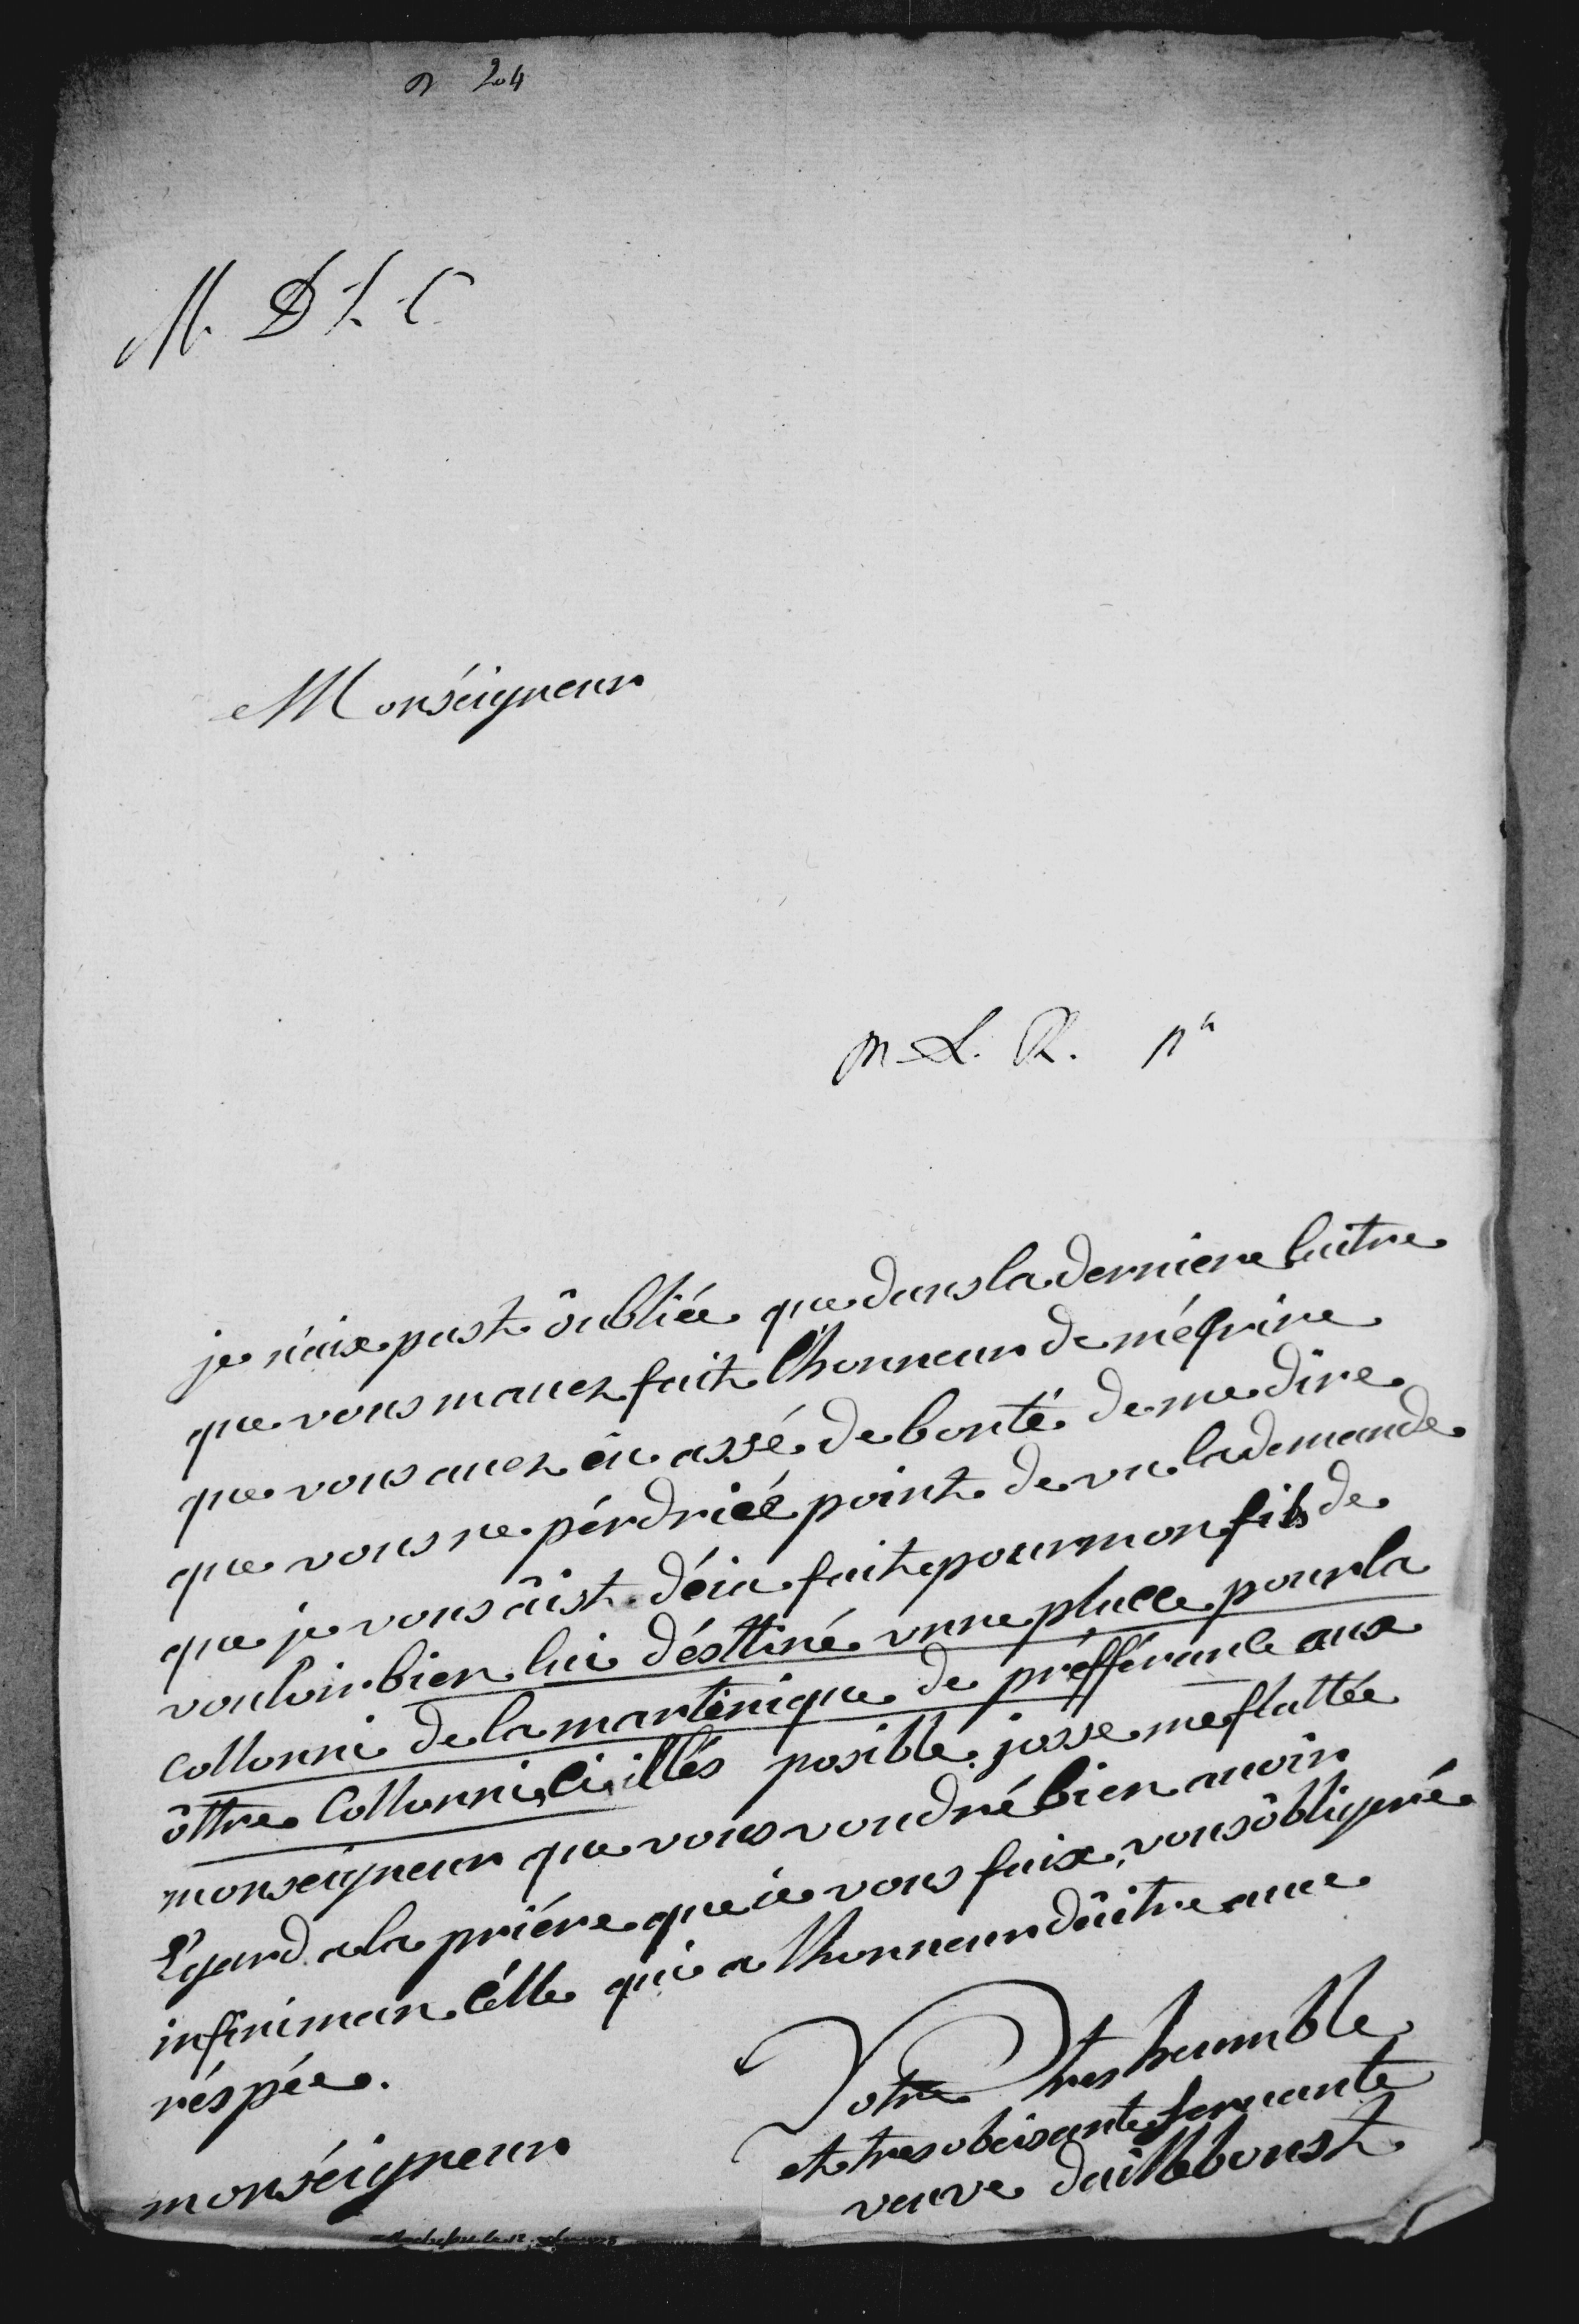 n 204
M. D L C
Monséigneur
M. L. R. nn
je n'aix past ôubliée que dans la derniere laitre
que vous mauez fait lhonneur de mécrire
que vous auez êu assé de bonté de me dire
que vous ne pérdriéz point de vu la demande
que je vous âist déia fait pour mon fils de
vouloir bien lui déstiné vnne place pour la
collonni de la martinique de préfférance aux
ôttre collonni posible josse me flattée
monseigneur que vous voudré bien auoir
Egard a la priére que ie vous faix, vous ôbligeré
infiniman célle qui a lhonneur dâitre auec
réspée.
monséigneur
Votre tres humble
et tres obeisante seruante
veuve dailleboust